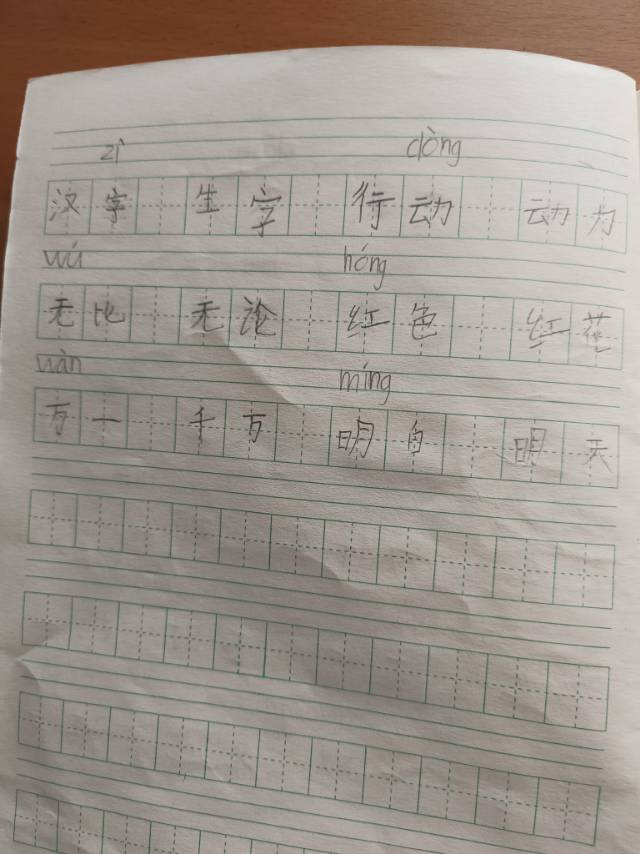 zì dòng
汉字 生字 行动 动力
wú hóng
无比 无论 红色 红花
wàn míng
万一 千万 明白 明天